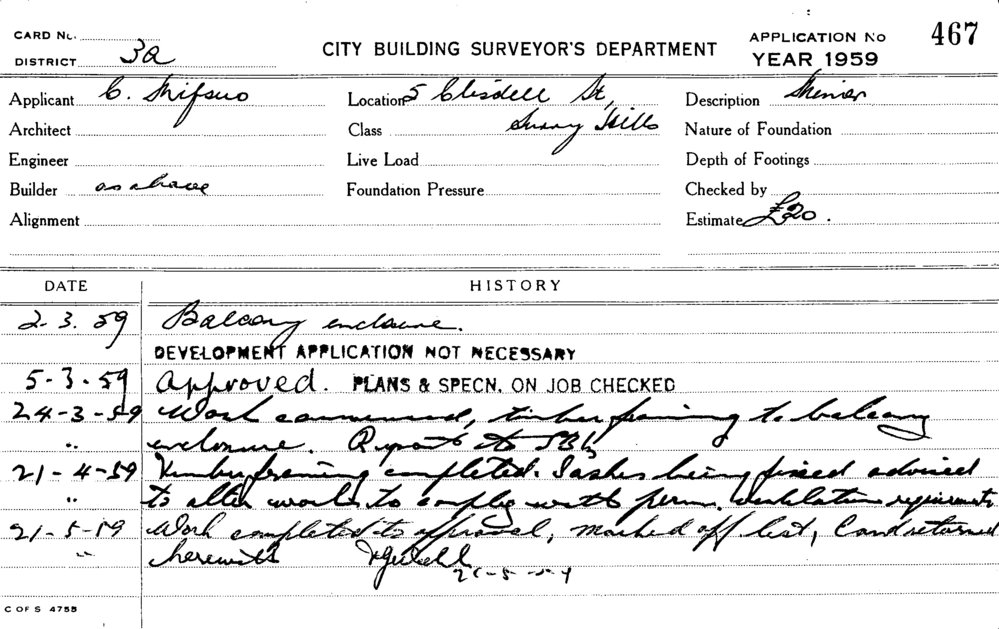 CARD No.
DISTRICT 3a
CITY BUILDING SURVEYOR'S DEPARTMENT
APPLICATION No 467
YEAR 1959
Applicant C.
Location 5 Clisdell St,
Description
Architect
Class Surry Hills
Nature of Foundation
Engineer
Live Load
Depth of Footings
Builder as above
Foundation Pressure
Checked by
Alignment
Estimate £20.
DATE HISTORY
2.3.59 Balcony enclosure.
DEVELOPMENT APPLICATION NOT NECESSARY
5-3-59 Approved. PLANS & SPECN. ON JOB CHECKED
24-3-59 Work commenced, timber framing to balcony
" enclosure. Report to
21-4-59 Timber framing completed. Sashes being fixed advised
" to alter work to comply with perm. ventilation requirements
21-5-59 Work completed to approval, marked off list, Card returned
" herewith
21-5-59
C OF S 4755